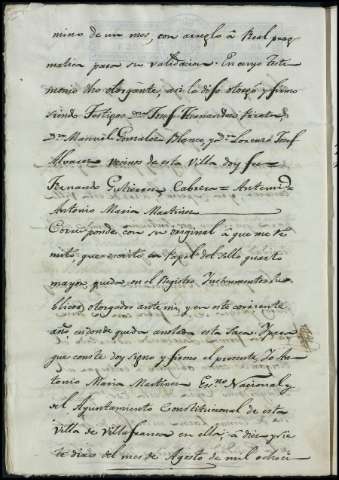 mino de un mes, con arreglo á Real prag
matica para su validacion. En cuyo testi
monio dho otorgante, asi lo dijo otorgó y firmó
siendo Testigos Josef Fernandez
Dn Manuel Gonzalez Blanco, y Dn Lorenzo Josef
Alvarez vecinos de esta Villa doy fee =
Fernando Gutierrez Cabrero = Antemi =
Antonio Maria Martinez
Corresponde con su original á que me re
mito que escrito en Papel del sello quarto
mayor queda en el Registro Instrumentos Pu
blicos, otorgados ante mi, y en este corriente
año endonde queda anotada esta Saca. Y para
que conste doy signo y firmo el presente, Yo An
tonio Maria Martinez Esno Nacional y
del Ayuntamiento Constitucional de esta
Villa de Villafranca en ella, á diez y sie
te dias del mes de Agosto de mil ochoci